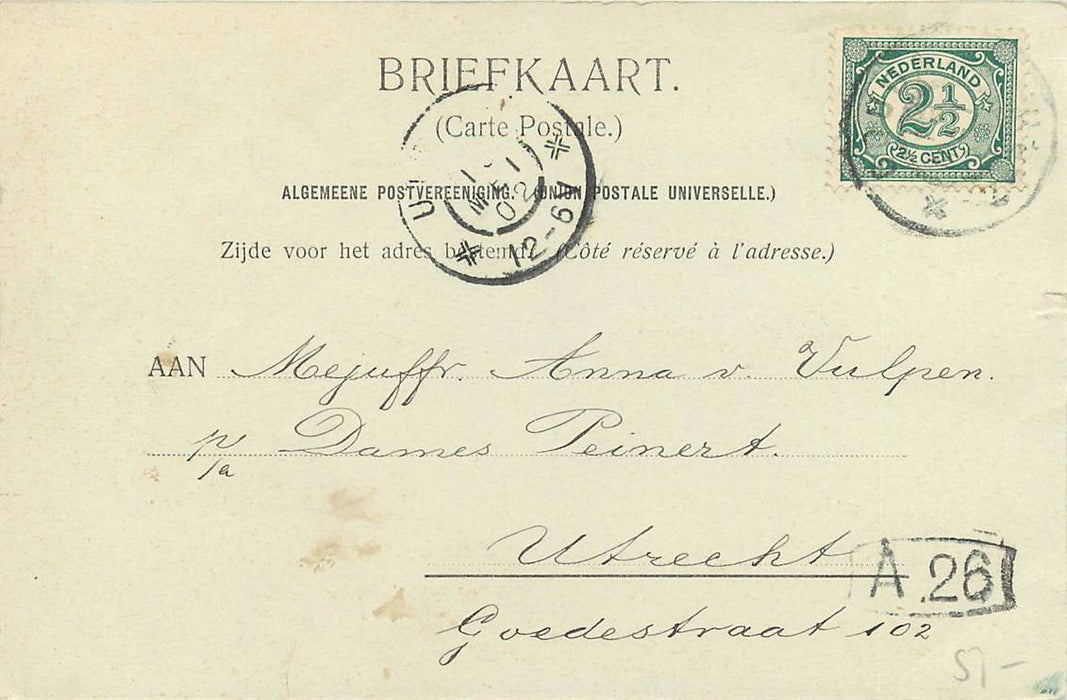 BRIEFKAART.
(Carte Postale.)
NEDERLAND
2 1/2
2½ CENT
ALGEMEENE POSTVEREENIGING. (UNION POSTALE UNIVERSELLE.)
1 MEI 02
12-6N
Zijde voor het adres bestemd. (Côté réservé à l'adresse.)
AAN Mejuffr. Anna v. Vulpen.
p/a Dames Peinert.
Utrecht
A.26
Goedestraat 102